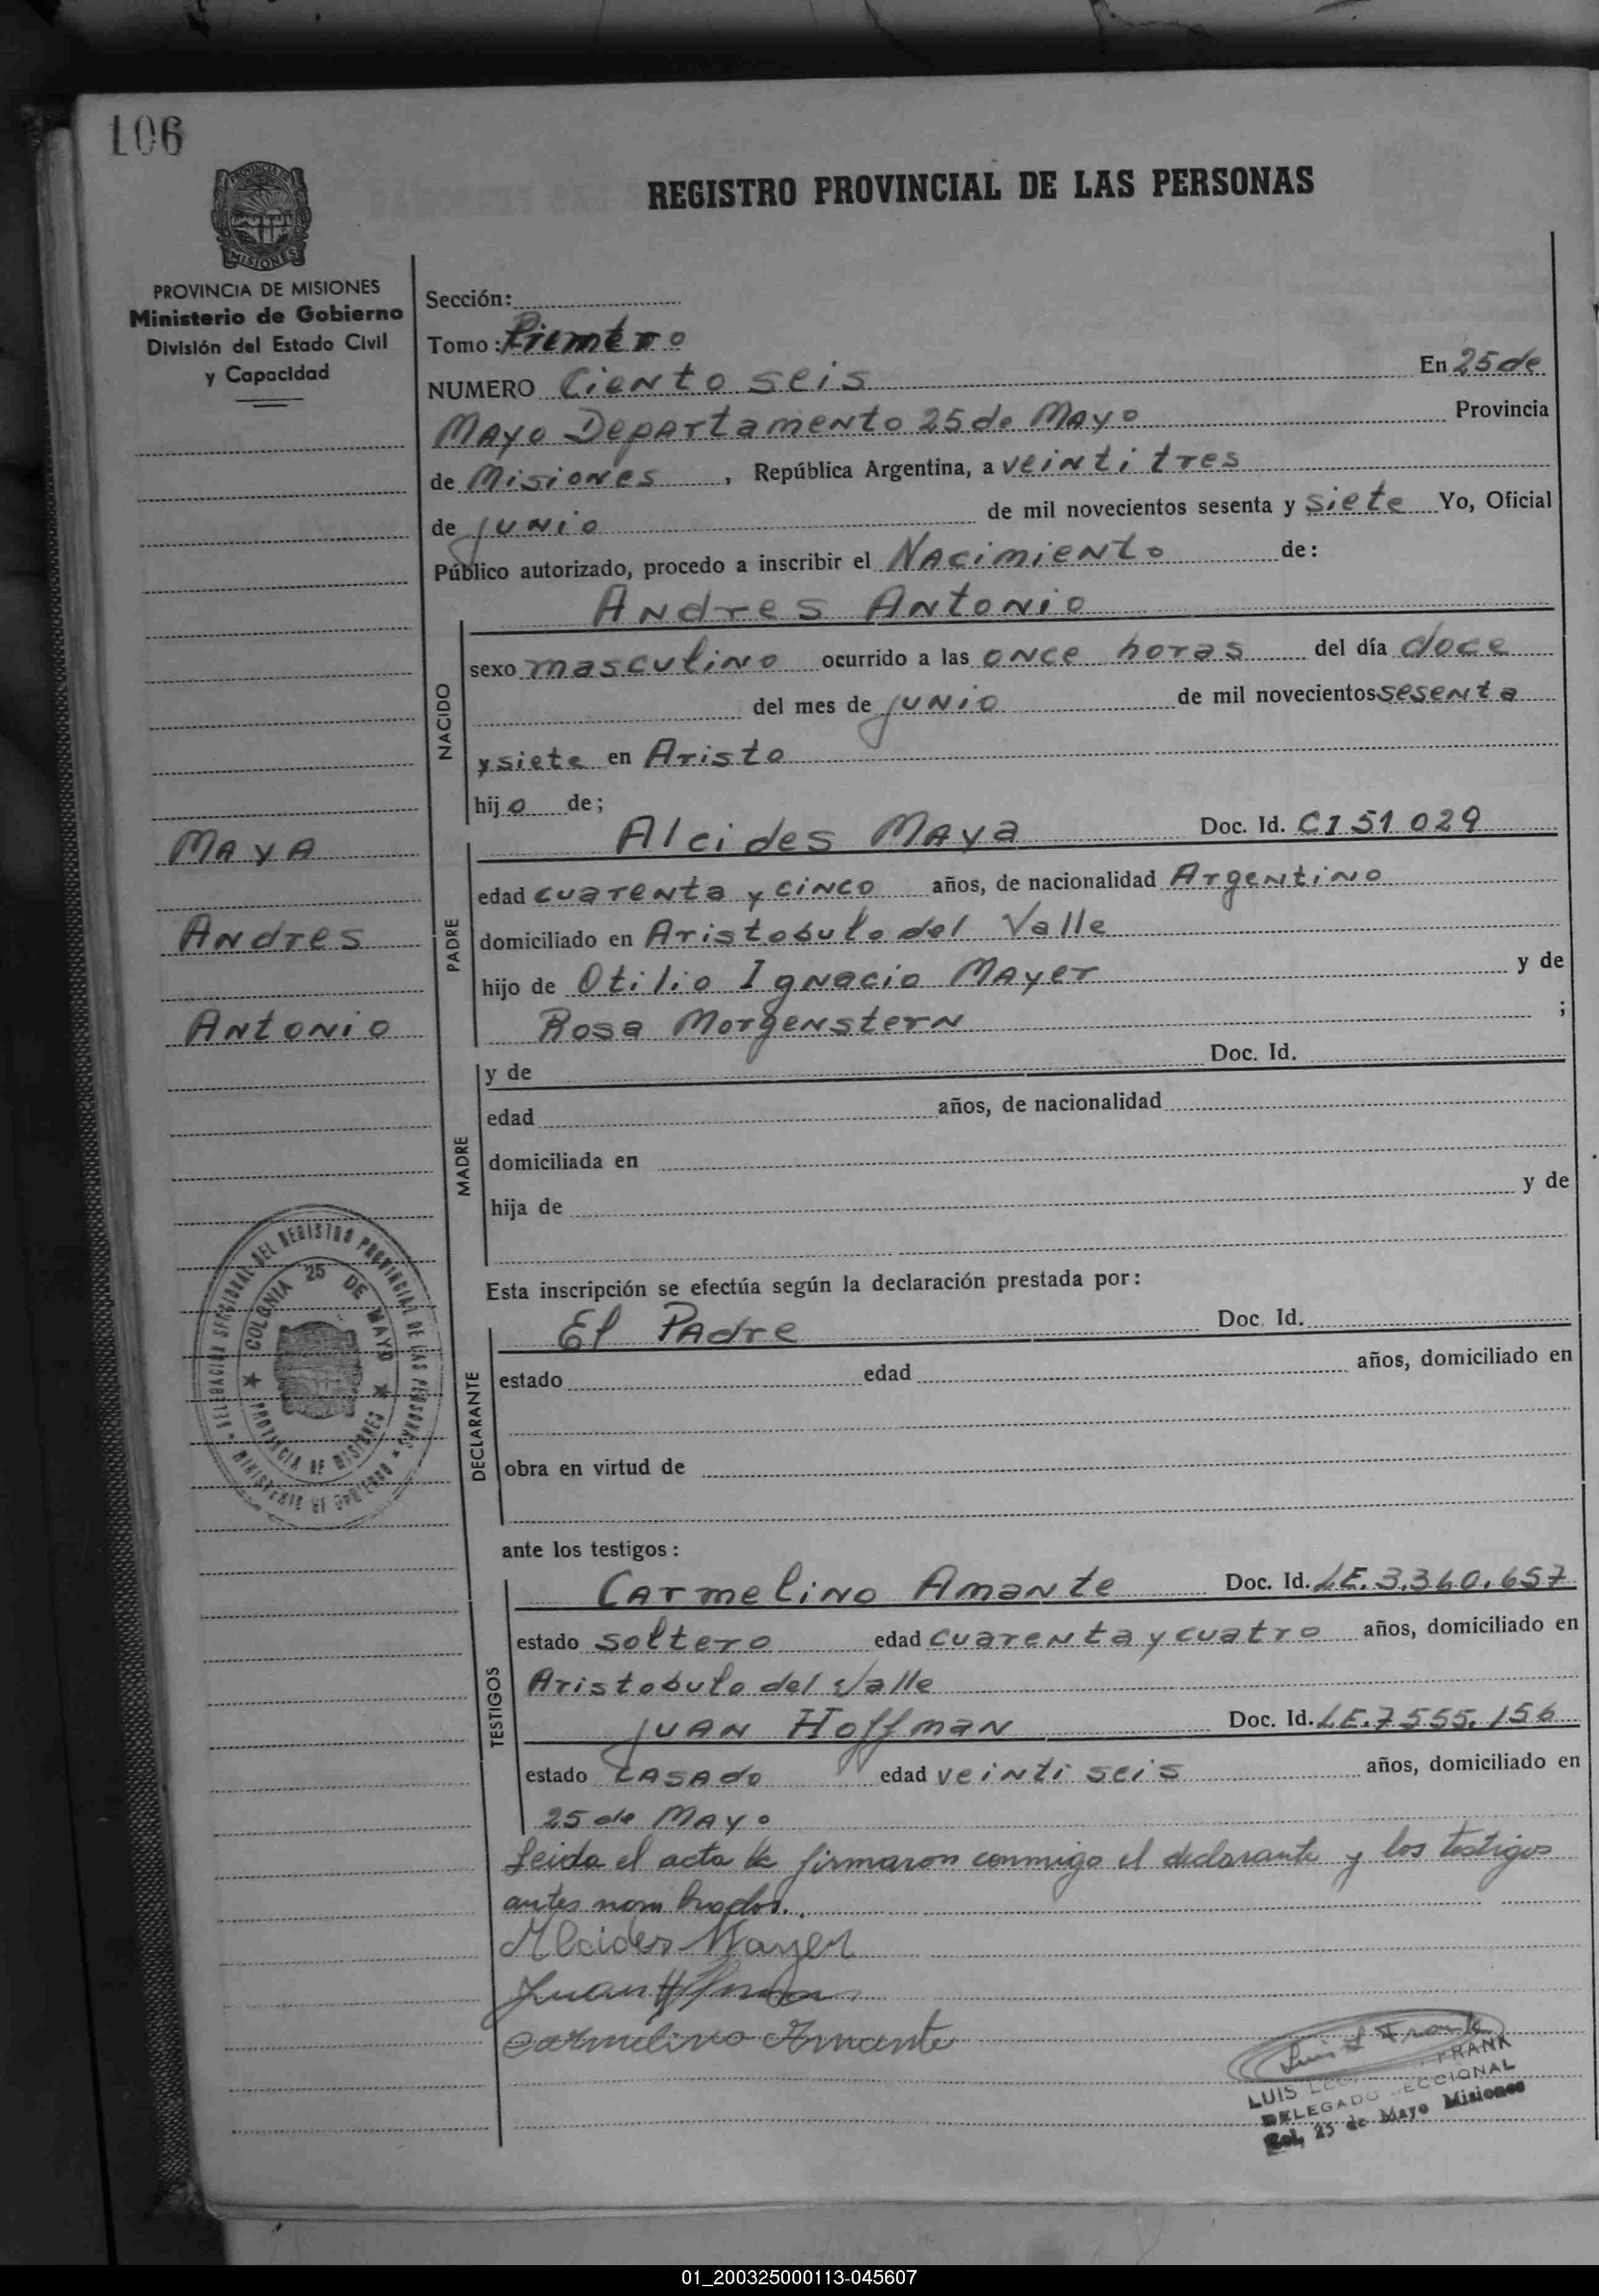 106
PROVINCIA DE
MISIONES
REGISTRO PROVINCIAL DE LAS PERSONAS
PROVINCIA DE MISIONES
Ministerio de Gobierno
División del Estado Civil
y Capacidad
Sección:
Tomo: Primero
NUMERO Ciento seis En 25 de
Mayo Departamento 25 de Mayo Provincia
de Misiones, República Argentina, a veintitres
de junio de mil novecientos sesenta y siete Yo, Oficial
Público autorizado, procedo a inscribir el Nacimiento de:
Andres Antonio
NACIDO
sexo masculino ocurrido a las once horas del día doce
del mes de junio de mil novecientos sesenta
y siete en Aristo
hijo de;
MAYA
Andres
Antonio
PADRE
Alcides Maya Doc. Id. CI 51 029
edad cuarenta y cinco años, de nacionalidad Argentino
domiciliado en Aristobulo del Valle
hijo de Otilio Ignacio Mayer y de
Rosa Morgenstern ;
MADRE
y de Doc. Id.
edad años, de nacionalidad
domiciliada en
hija de y de
DELEGACION SECCIONAL DEL REGISTRO PROVINCIAL DE LAS PERSONAS
MINISTERIO DE GOBIERNO
COLONIA 25 DE MAYO
PROVINCIA DE MISIONES
Esta inscripción se efectúa según la declaración prestada por:
DECLARANTE
El Padre Doc. Id.
estado edad años, domiciliado en
obra en virtud de
ante los testigos:
TESTIGOS
Carmelino Amante Doc. Id. LE.3.360.657
estado soltero edad cuarenta y cuatro años, domiciliado en
Aristobulo del Valle
Juan Hoffman Doc. Id. LE.7555.156
estado casado edad veinti seis años, domiciliado en
25 de Mayo
Leida el acta la firmaron conmigo el declarante y los testigos
antes nombrados.
Alcides Mayer
Juan
Carmelino Amante
Luis L Frank
LUIS FRANK
DELEGADO SECCIONAL
Col. 25 de Mayo Misiones
01_200325000113-045607